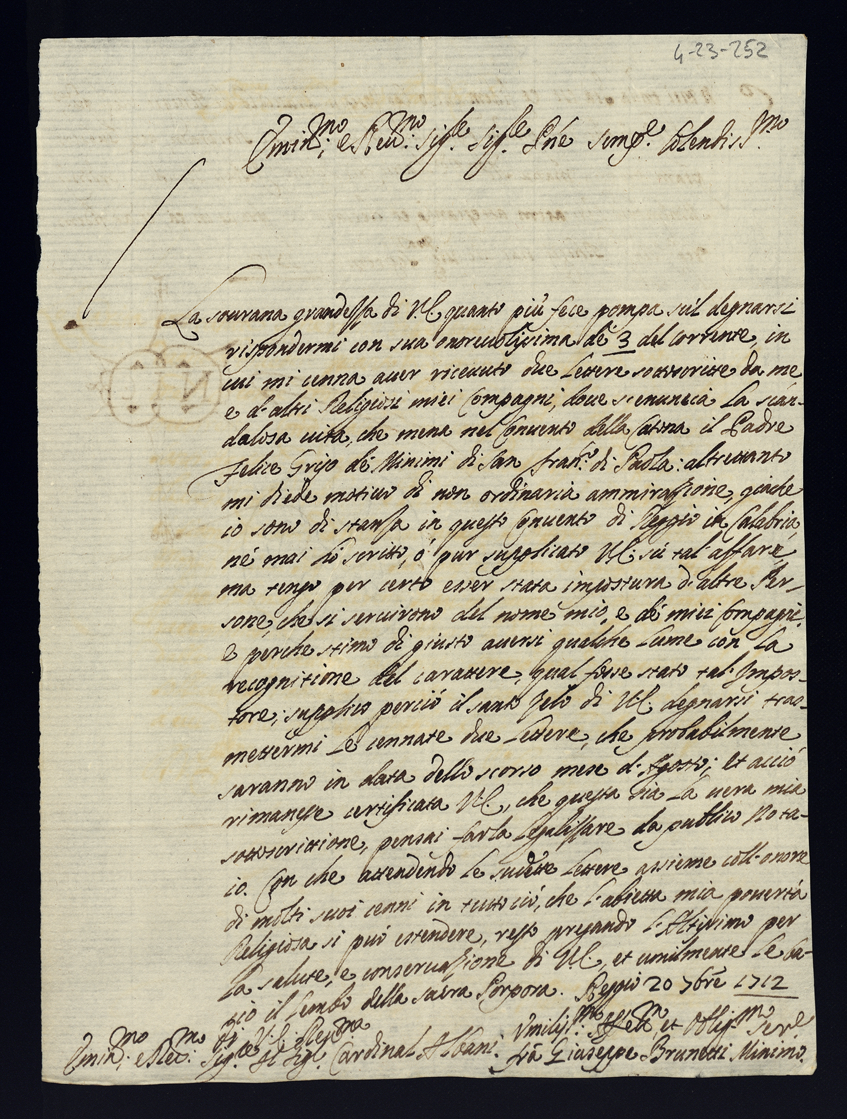 4-23-252
Emin:mo, e Rev:mo Sig:le Sig:le Pñe Semp:e Colendiss:mo
La sourana grandessa di VE. quanto più fece pompa sùl degnarsi
rispondermi con sua onoreuolissima dè 3 del corrente, in
cui mi cenna auer riceuuto due Lettere sottoscritte da me
e d'altri Religiosi miei Compagni, doue s'enuncia La scan-
dalosa uita, che mena nel Conuento della Catona il Padre
Felice Grijo dè Minimi di San Fran:co di Paola: altrettanto
mi diede motiuo di non ordinaria ammirassione, giache
io sono di stansa in questo Conuento di Reggio in Calabria,
né mai hò scritto, ó pur supplicato VE: sù tal affare,
ma tengo per certo esser stata impostura d'altre Per-
sone, che si seruirono del nome mio, e dè miei Compagni.
E perche stimo di giusto auersi qualche Lume con La
recognitione del carattere, qual fosse stato tal Impos-
tore; supplico perciò il santo Zelo di VE. degnarsi tras-
mettermi Le cennate due Lettere, che probabilmente
saranno in data dello scorso mese d'Agosto; et acciò
rimanesse certificata VE., che questa sia La uera mia
sottoscrittione, pensai farla Legalissare da publico Nota-
io. Con che attendendo Le sudette Lettere assieme coll'onore
di molti suoi cenni in tutto ciò, che l'abietta mia pouertà
Religiosa si può estendere, resto pregando l'Altissimo per
La salute, e conseruassione di VE., et umilmente Le ba-
cio il Lembo della sacra Porpora. Reggio 20 7bre 1712
Di V. E. Reu:ma
Umiliss:mo Deu:mo, et Oblig:mo Ser:e
Emin:mo e Reu:mo Sig:le il Sig:le Cardinal Albani. Frà Giuseppe Brunetti Minimo.